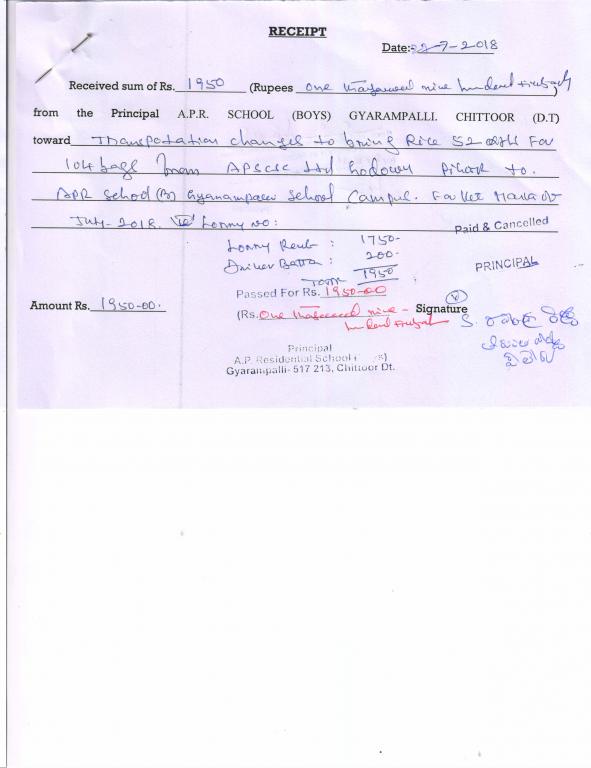 RECEIPT
Date: 22-7-2018
Received sum of Rs. 1950 (Rupees One thousand nine hundred fifty only)
from the Principal A.P.R. SCHOOL (BOYS) GYARAMPALLI. CHITTOOR (D.T)
toward Transpotation charges to bring Rice 52 For
104 bags from APSCSC Ltd Godown Piler to.
APR School (B) Gyarampalli School Campus. For the
July-2018. Lorry no:
Paid & Cancelled
Lorry Rent : 1750-
Driver Batta : 200-
Total 1950
PRINCIPAL
Passed For Rs. 1950-00
Amount Rs. 1950-00.
(Rs. One thousand nine - Signature
hundred fifty
S.
Principal
A.P. Residential School
Gyarampalli- 517 213, Chittoor Dt.